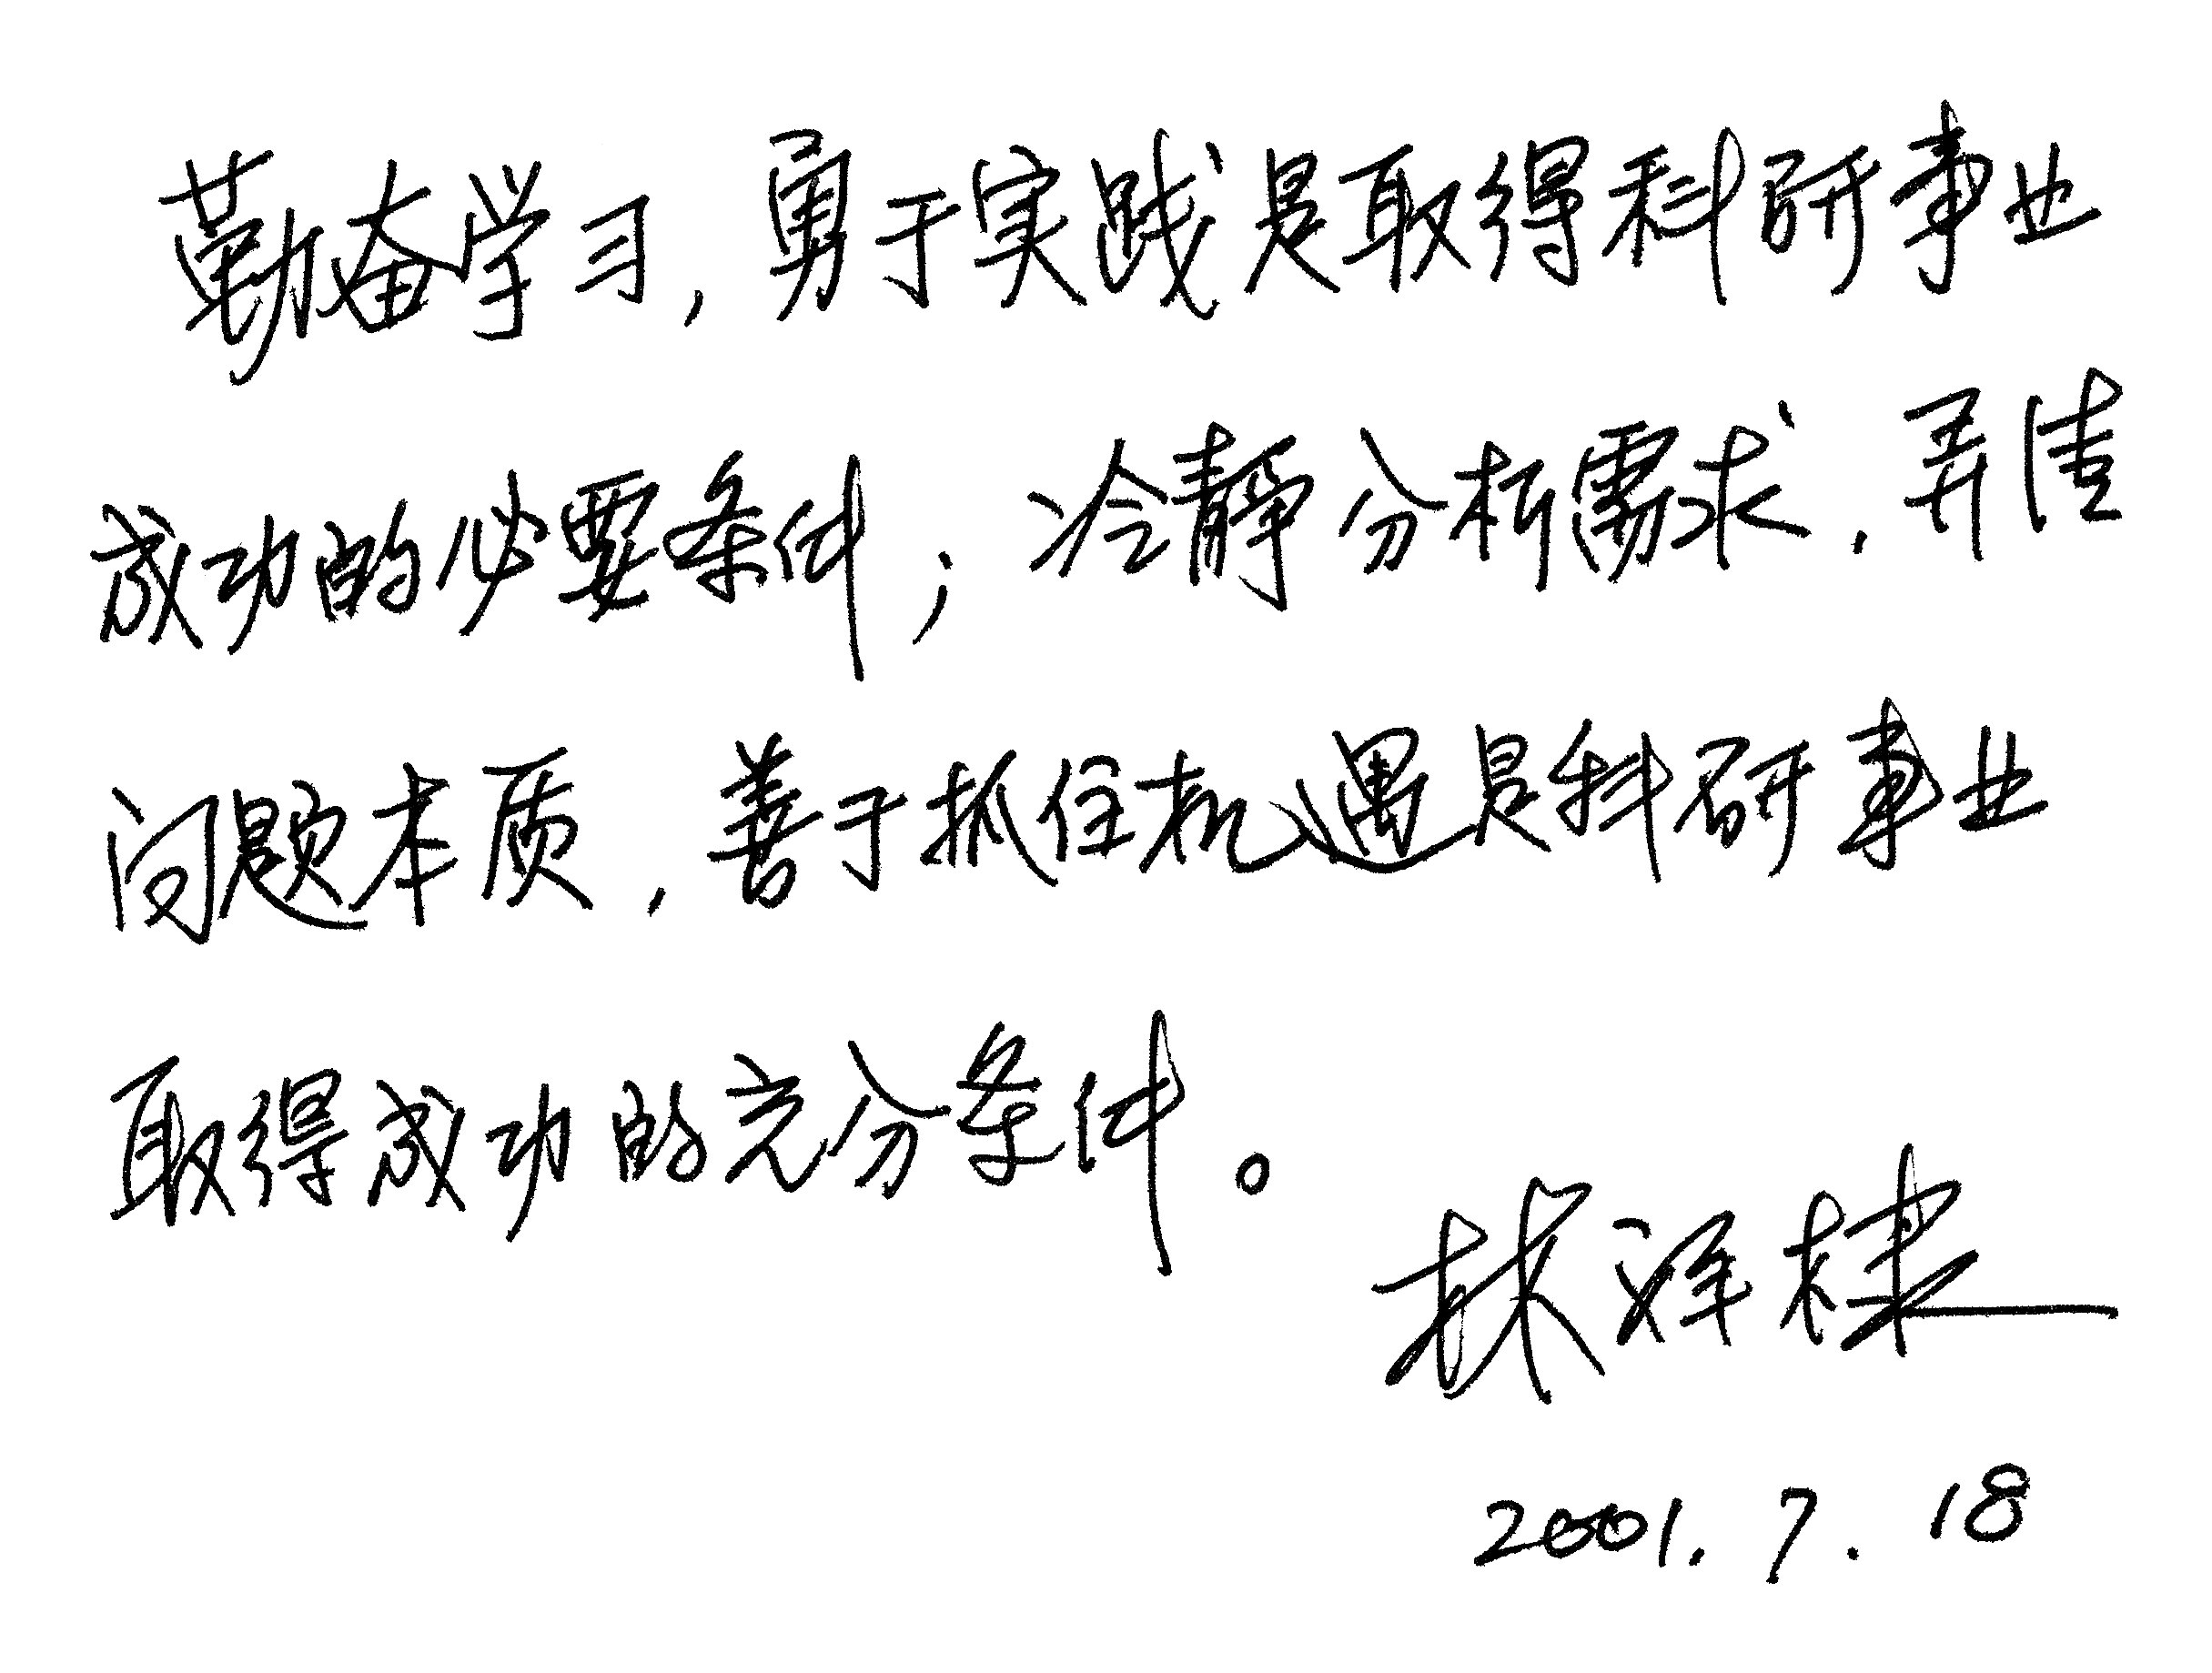 勤奋学习，勇于实践是取得科研事业
成功的必要条件；冷静分析需求，弄清
问题本质，善于抓住机遇是科研事业
取得成功的充分条件。
林祥棣
2001.7.18